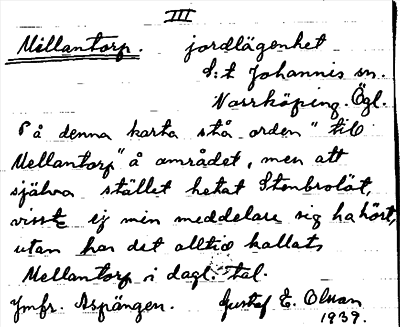 III
Mellantorp. jordlägenhet
S:t Johannis sn.
Norrköping. Ögl.
På denna karta stå orden "till
Mellantorp" å området, men att
själva stället hetat Stenbrolöt,
visste ej min meddelare sig ha hört,
utan har det alltid kallats
Mellantorp i dagl. tal.
Jmfr. Aspängen. Gustaf E. Olsson
1939.